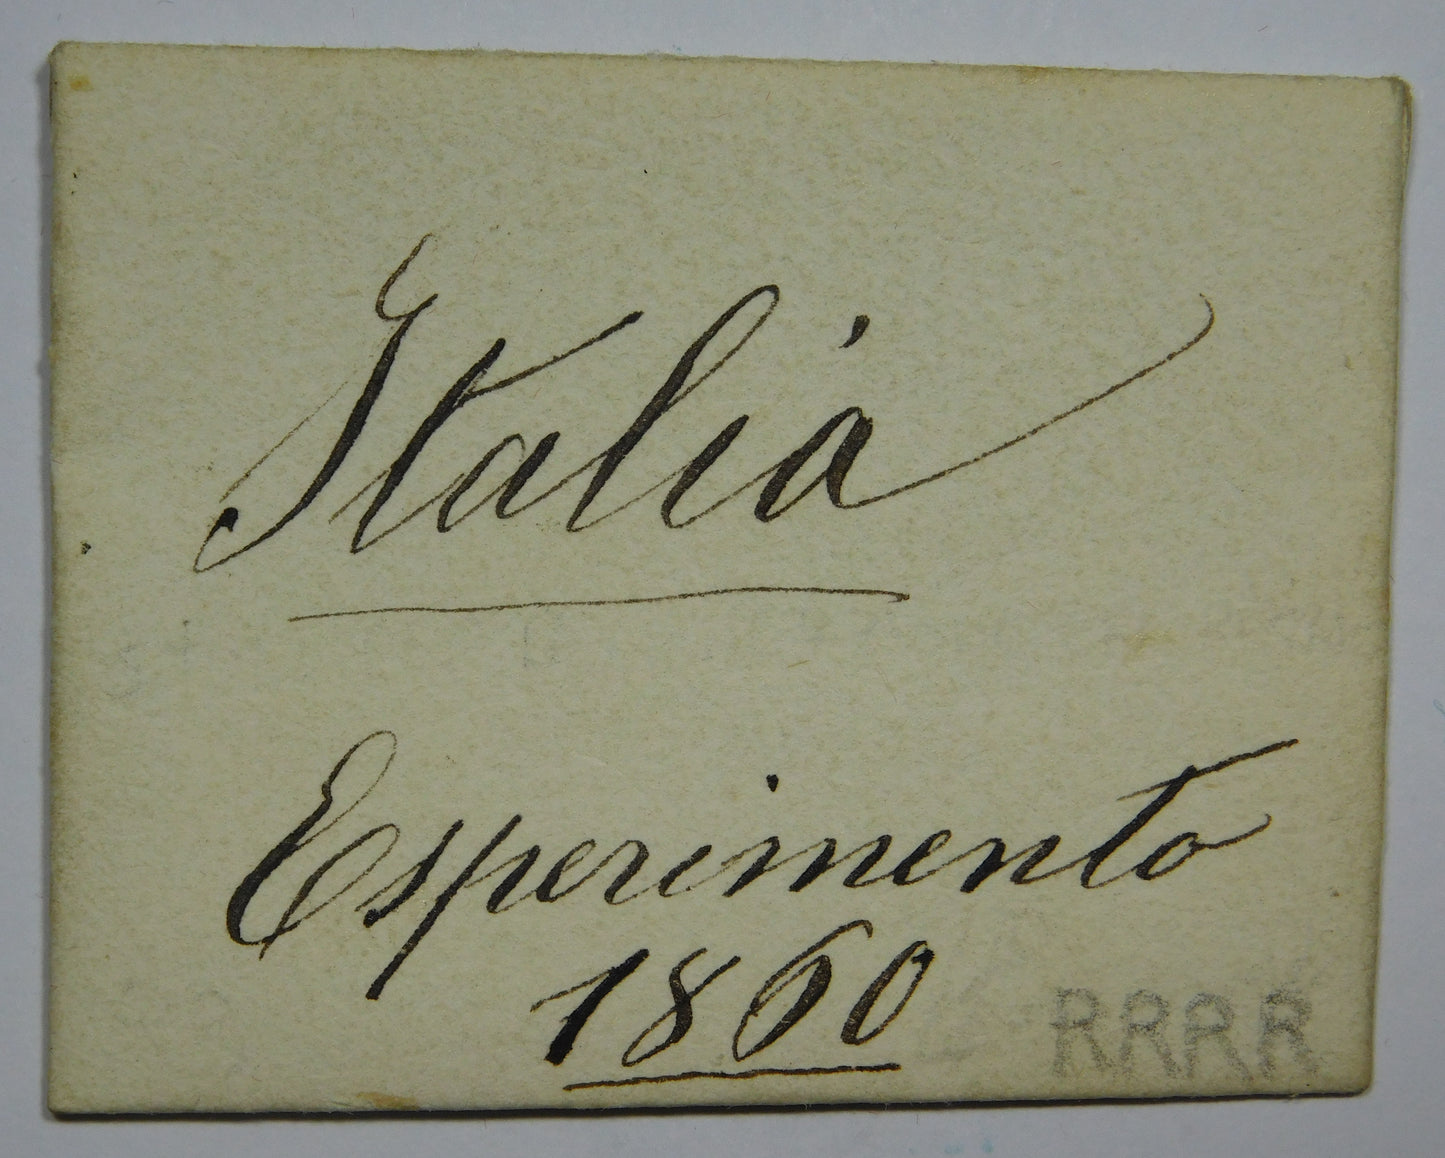 Italia
Esperimento
1860
RRRR